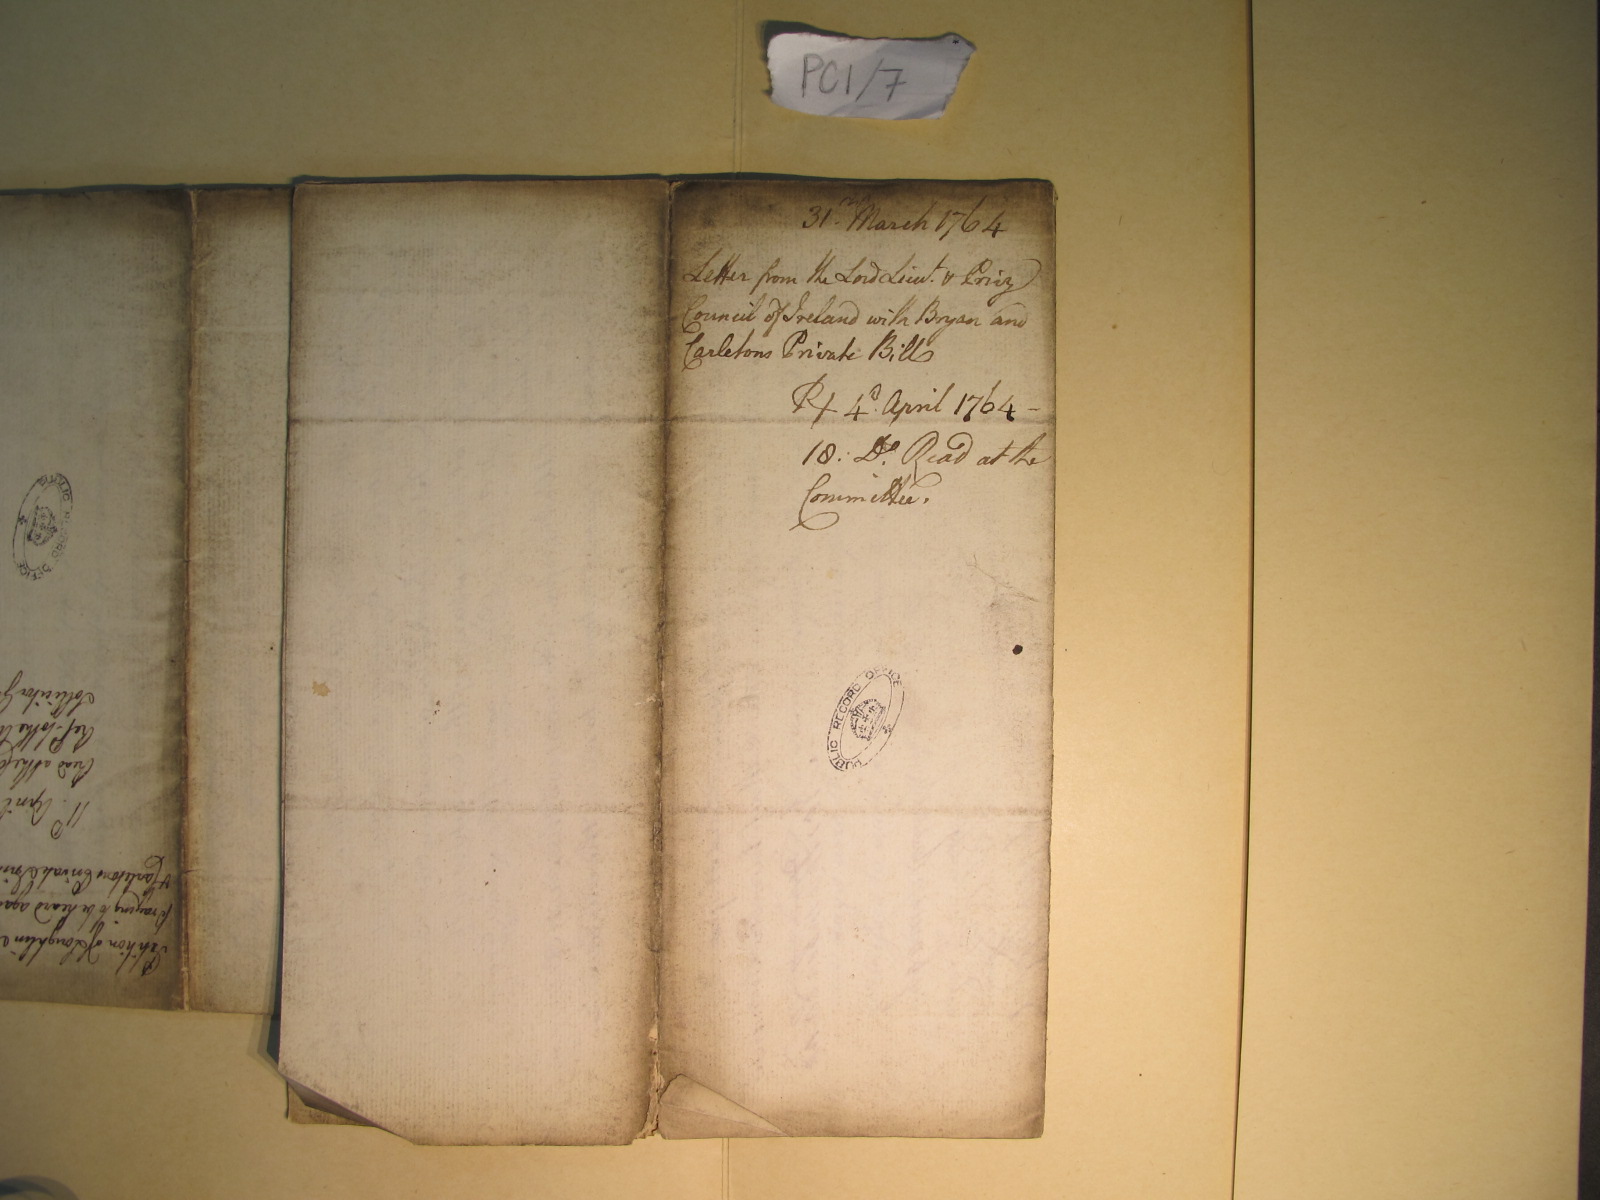 PC1/7
31st March 1764
Letter from the Lord Lieut. & Privy
Council of Ireland with Bryan and
Carletons Private Bill
Rx 4th April 1764 -
18: Do. Read at the
Committee.
PUBLIC RECORD OFFICE
PUBLIC RECORD OFFICE
Petition of Loughlin
Praying to be heard
& Carletons Private
11th April
Read at the
Ref. to the
Sollicitor